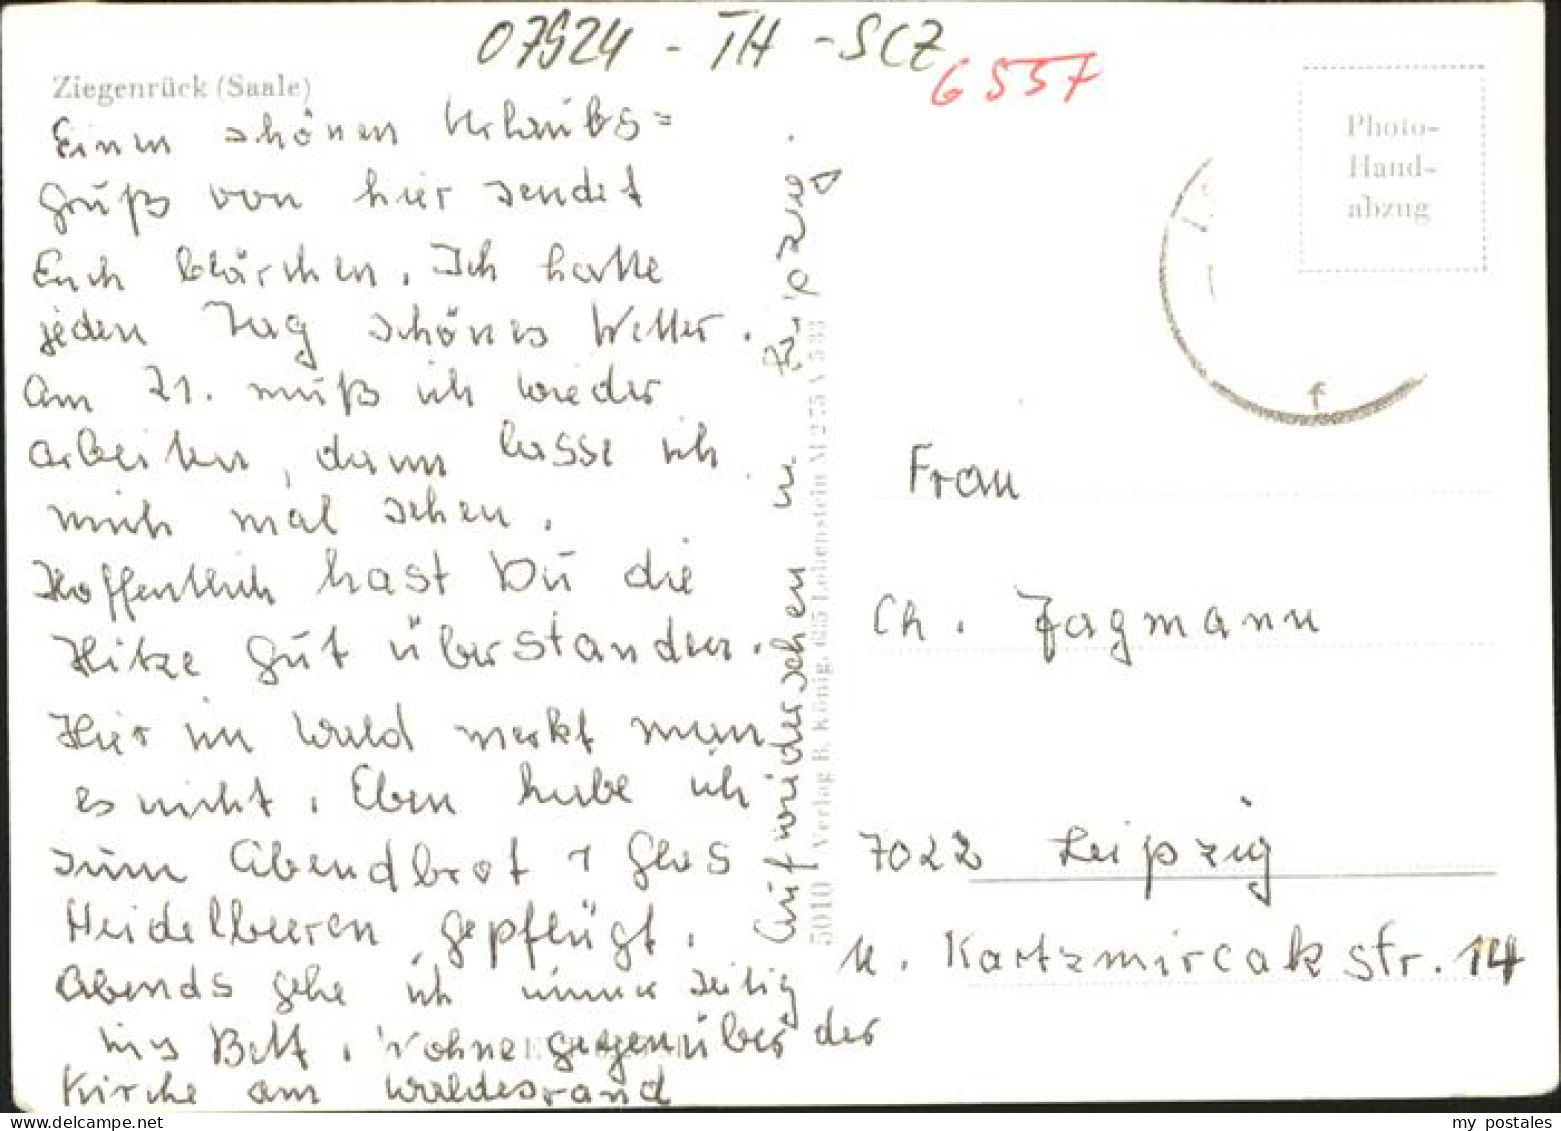 07924 - TH - SCZ
6557
Ziegenrück (Saale)
Einen schönen Urlaubs=
gruß von hier sendet
Euch Klärchen. Ich hatte
jeden Tag schönes Wetter.
Am 21. muß ich wieder
arbeiten, dann lasse ich
mich mal sehen.
Hoffentlich hast Du die
Hitze gut überstanden.
Hier im Wald merkt man
es nicht. Eben habe ich
zum Abendbrot 1 Glas
Heidelbeeren gepflügt.
Abends gehe ich immer zeitig
ins Bett. Wohne gegenüber der
Kirche am Waldesrand
Auf wiedersehen in Leipzig.
5010 Verlag B. König, 685 Lobenstein M 275 A 5 83
Photo-
Hand-
abzug
Frau
Ch. Zagmann
7022 Leipzig
K. Kartzmircakstr. 14
my postales